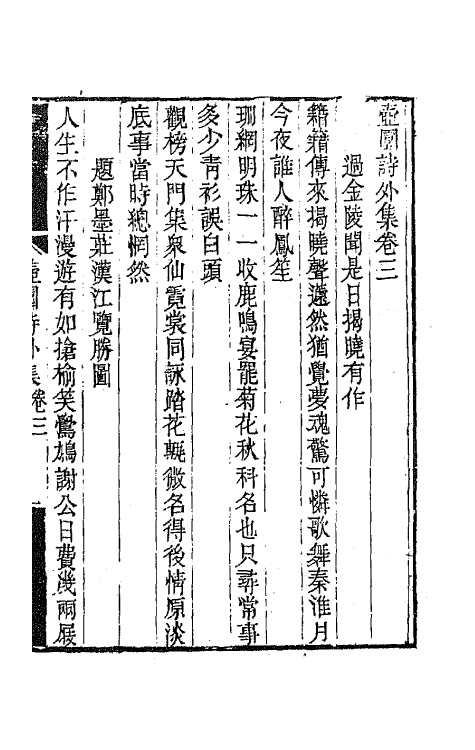 壺園詩外集卷三
過金陵聞是日揭曉有作
籍籍傳來揭曉聲遽然猶覺夢魂驚可憐歌舞秦淮月
今夜誰人醉鳳笙
珊網明珠一一收鹿鳴宴罷菊花秋科名也只尋常事
多少青衫誤白頭
觀榜天門集衆仙霓裳同詠踏花韉微名得後情原淡
底事當時總惘然
題鄭墨莊漢江覽勝圖
人生不作汗漫遊有如搶榆笑鷽鳩謝公日費幾兩屐
壺園詩外集卷三
一